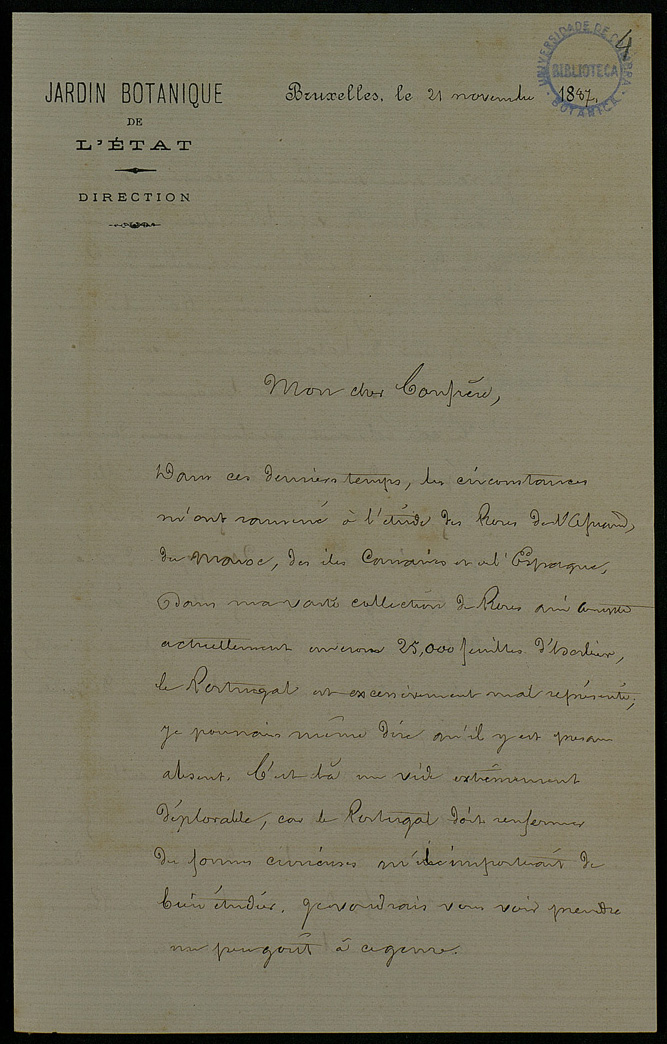 4
UNIVERSIDADE DE COIMBRA
BIBLIOTECA
BOTANICA
JARDIN BOTANIQUE
DE
L'ÉTAT
DIRECTION
Bruxelles, le 21 novembre 1887.
Mon cher Confrère,
Dans ces derniers temps, les circonstances
m'ont ramené à l'étude des Roses de
du Maroc, des iles Canaries et de l'Espagne,
Dans ma vaste collection de Roses qui compte
actuellement environ 25,000 feuilles d'herbier,
le Portugal est excessivement mal représenté;
je pourrais même dire qu'il y est presque
absent. C'est là un vide extrêmement
déplorable, car le Portugal doit renfermer
des formes curieuses qu'il importerait de
bien étudier. Je voudrais vous voir prendre
un peu goût à ce genre.